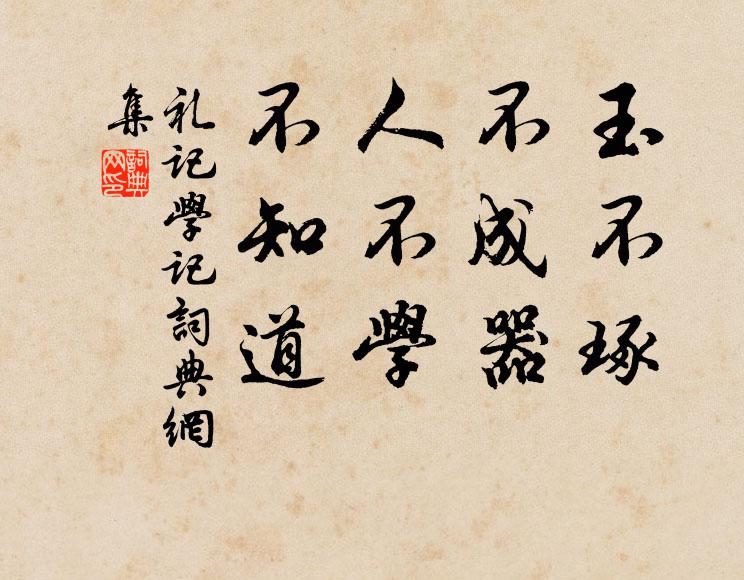 玉不琢
不成器
人不學
不知道
礼记學记詞典網
集
詞典网印